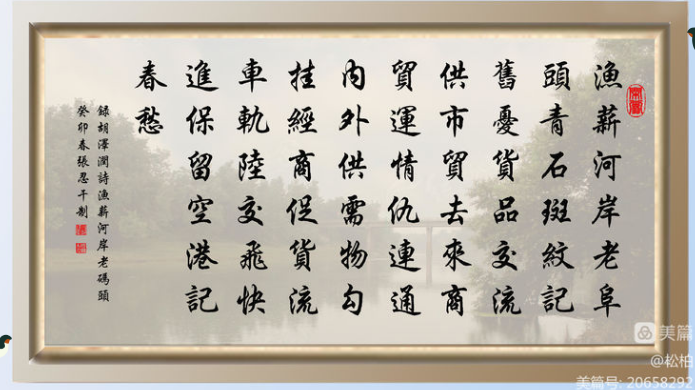 漁薪河岸老阜
頭青石斑紋記
舊憂貨品交流
供市貿去來商
貿運情仇連通
内外供需物勾
挂經商促貨流
車軌陸交飛快
進保留空港記
春愁
録胡澤潤詩漁薪河岸老碼頭
癸卯春張忍千制
美篇
@松柏
美篇号: 20658292